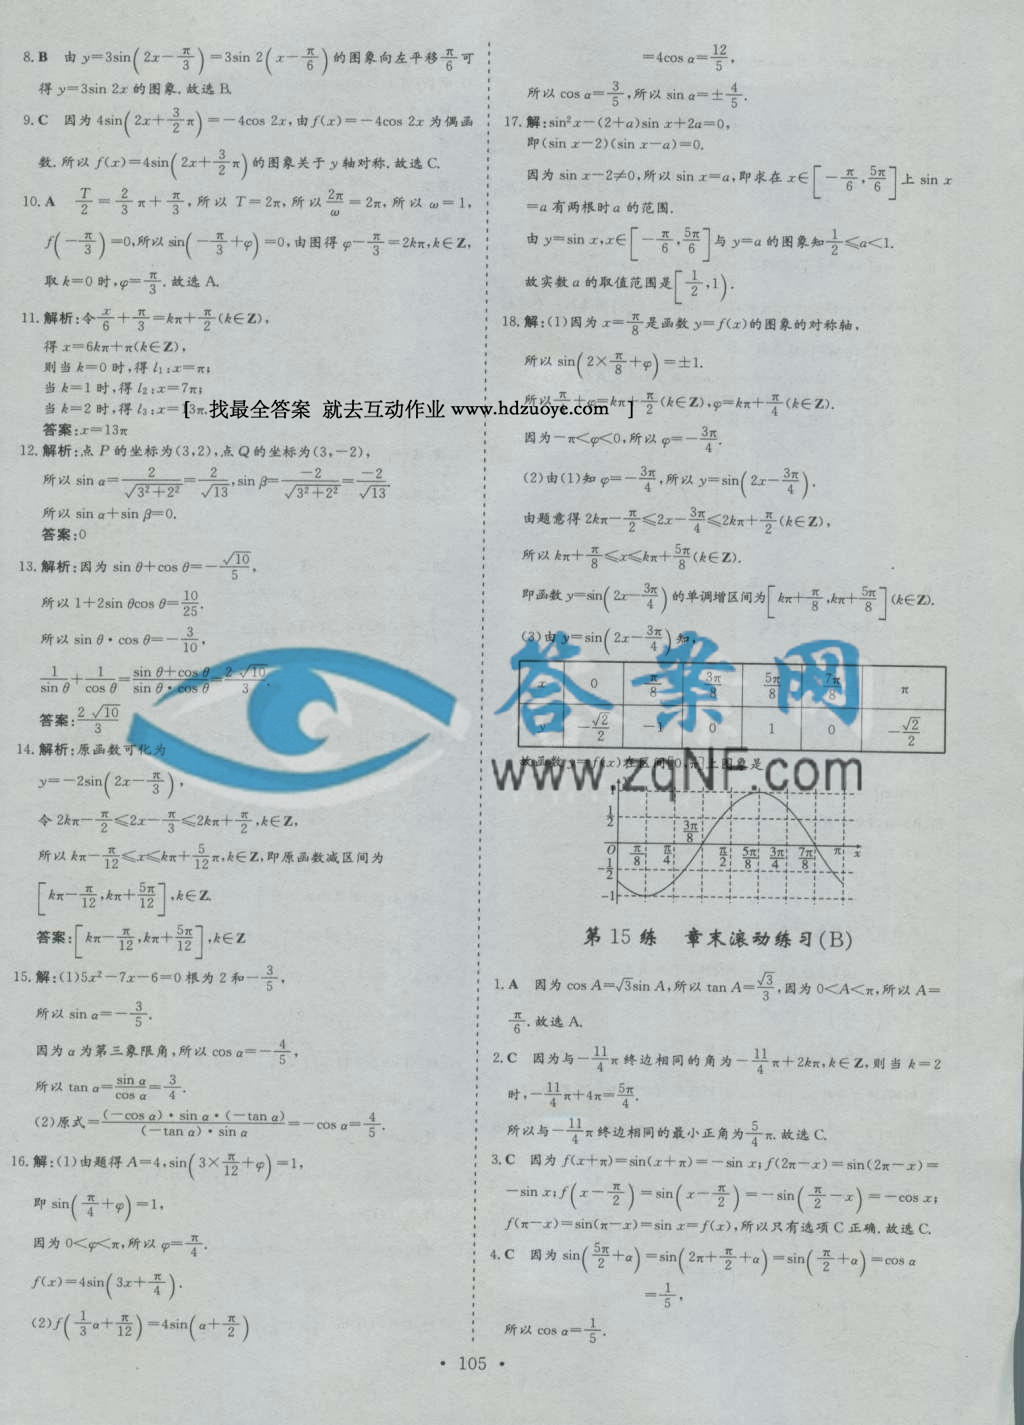 8. B 由 y=3sin(2x-π/3)=3sin 2(x-π/6)的图象向左平移π/6可
得 y=3sin 2x 的图象. 故选 B.
9. C 因为 4sin(2x+3/2π)=-4cos 2x,由 f(x)=-4cos 2x 为偶函
数. 所以 f(x)=4sin(2x+3/2π)的图象关于 y 轴对称. 故选 C.
10. A T/2=2/3π+π/3,所以 T=2π,所以2π/ω=2π,所以 ω=1,
f(-π/3)=0,所以 sin(-π/3+φ)=0,由图得 φ-π/3=2kπ,k∈Z,
取 k=0 时,φ=π/3. 故选 A.
11. 解析:令x/6+π/3=kπ+π/2(k∈Z),
得 x=6kπ+π(k∈Z),
则当 k=0 时,得 l₁:x=π;
当 k=1 时,得 l₂:x=7π;
当 k=2 时,得 l₃:x=13π.
[ 找最全答案 就去互动作业 www.hdzuoye.com ]
答案:x=13π
12. 解析:点 P 的坐标为(3,2),点 Q 的坐标为(3,-2),
所以 sin α=2/√(3²+2²)=2/√13,sin β=-2/√(3²+2²)=-2/√13.
所以 sin α+sin β=0.
答案:0
13. 解析:因为 sin θ+cos θ=-√10/5,
所以 1+2sin θcos θ=10/25.
所以 sin θ·cos θ=-3/10,
1/sin θ+1/cos θ=(sin θ+cos θ)/(sin θ·cos θ)=2√10/3.
答案:2√10/3
14. 解析:原函数可化为
y=-2sin(2x-π/3),
令 2kπ-π/2≤2x-π/3≤2kπ+π/2,k∈Z,
所以 kπ-π/12≤x≤kπ+5/12π,k∈Z,即原函数减区间为
[kπ-π/12,kπ+5π/12],k∈Z.
答案:[kπ-π/12,kπ+5π/12],k∈Z
15. 解:(1)5x²-7x-6=0 根为 2 和-3/5,
所以 sin α=-3/5.
因为 α 为第三象限角,所以 cos α=-4/5,
所以 tan α=sin α/cos α=3/4.
(2)原式=(-cos α)·sin α·(-tan α)/(-tan α)·sin α=-cos α=4/5.
16. 解:(1)由题得 A=4,sin(3×π/12+φ)=1,
即 sin(π/4+φ)=1,
因为 0<φ<π,所以 φ=π/4.
f(x)=4sin(3x+π/4).
(2)f(1/3α+π/12)=4sin(α+π/2)
=4cos α=12/5,
所以 cos α=3/5,所以 sin α=±4/5.
17. 解:sin²x-(2+a)sin x+2a=0,
即(sin x-2)(sin x-a)=0.
因为 sin x-2≠0,所以 sin x=a,即求在 x∈[-π/6,5π/6]上 sin x
=a 有两根时 a 的范围.
由 y=sin x,x∈[-π/6,5π/6]与 y=a 的图象知1/2≤a<1.
故实数 a 的取值范围是[1/2,1).
18. 解:(1)因为 x=π/8是函数 y=f(x)的图象的对称轴,
所以 sin(2×π/8+φ)=±1.
所以π/4+φ=kπ+π/2(k∈Z),φ=kπ+π/4(k∈Z).
因为-π<φ<0,所以 φ=-3π/4.
(2)由(1)知 φ=-3π/4,所以 y=sin(2x-3π/4).
由题意得 2kπ-π/2≤2x-3π/4≤2kπ+π/2(k∈Z),
所以 kπ+π/8≤x≤kπ+5π/8(k∈Z).
即函数 y=sin(2x-3π/4)的单调增区间为[kπ+π/8,kπ+5π/8](k∈Z).
(3)由 y=sin(2x-3π/4)知,
x 0 π/8 3π/8 5π/8 7π/8 π
y -√2/2 -1 0 1 0 -√2/2
答案网
www.zqNF.com
故函数 y=f(x)在区间[0,π]上图象是
y
1/2 3π/8
O π/8 π/4 π/2 5π/8 3π/4 7π/8 π x
-1/2
-1
第 15 练 章末滚动练习(B)
1. A 因为 cos A=√3sin A,所以 tan A=√3/3,因为 0<A<π,所以 A=
π/6. 故选 A.
2. C 因为与-11/4π 终边相同的角为-11/4π+2kπ,k∈Z,则当 k=2
时,-11/4π+4π=5π/4.
所以与-11/4π 终边相同的最小正角为5/4π. 故选 C.
3. C 因为 f(x+π)=sin(x+π)=-sin x;f(2π-x)=sin(2π-x)=
-sin x;f(x-π/2)=sin(x-π/2)=-sin(π/2-x)=-cos x;
f(π-x)=sin(π-x)=sin x=f(x),所以只有选项 C 正确. 故选 C.
4. C 因为 sin(5π/2+α)=sin(2π+π/2+α)=sin(π/2+α)=cos α
=1/5,
所以 cos α=1/5.
· 105 ·